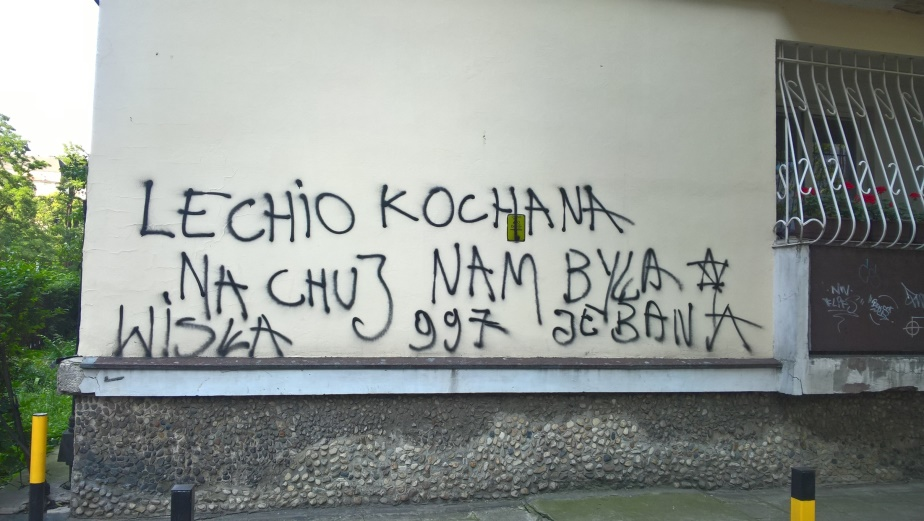 LECHiO KOCHANA
NA CHUJ NAM BYŁA
WiSŁA 997 JEBANA